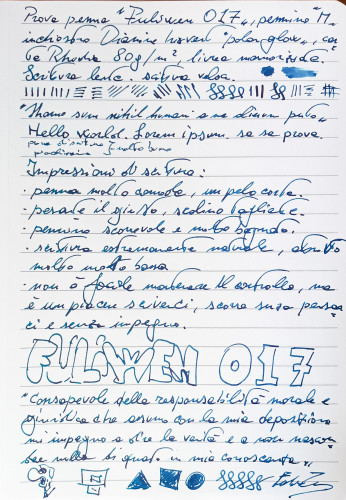 Prova penna "Fuliwen 017", pennino "M"
inchiostro Diamine haven "polar glow", car
ta Rhodia 80g/m², linea marmorizzata.
Scrittura lenta. scrittura veloce.
"Homo sum nihil humani a me alienum puto"
Hello world. Lorem ipsum. sa sa prova.
prova di scrittura
Impressioni di scrittura:
· penna molto comoda, un pelo corta.
· pesante il giusto, sezione tagliente.
· pennino scorrevole e molto bagnato.
· scrittura estremamente naturale, attrito
molto molto basso
· non è facile mantenere il controllo, ma
è un piacere scriverci, scorre senza pensar
ci e senza impegno.
FULIWEN 017
"Consapevole della responsabilità morale e
giuridica che assumo con la mia deposizione
mi impegno a dire la verità e a non nascon
dere nulla di quanto è a mia conoscenza".